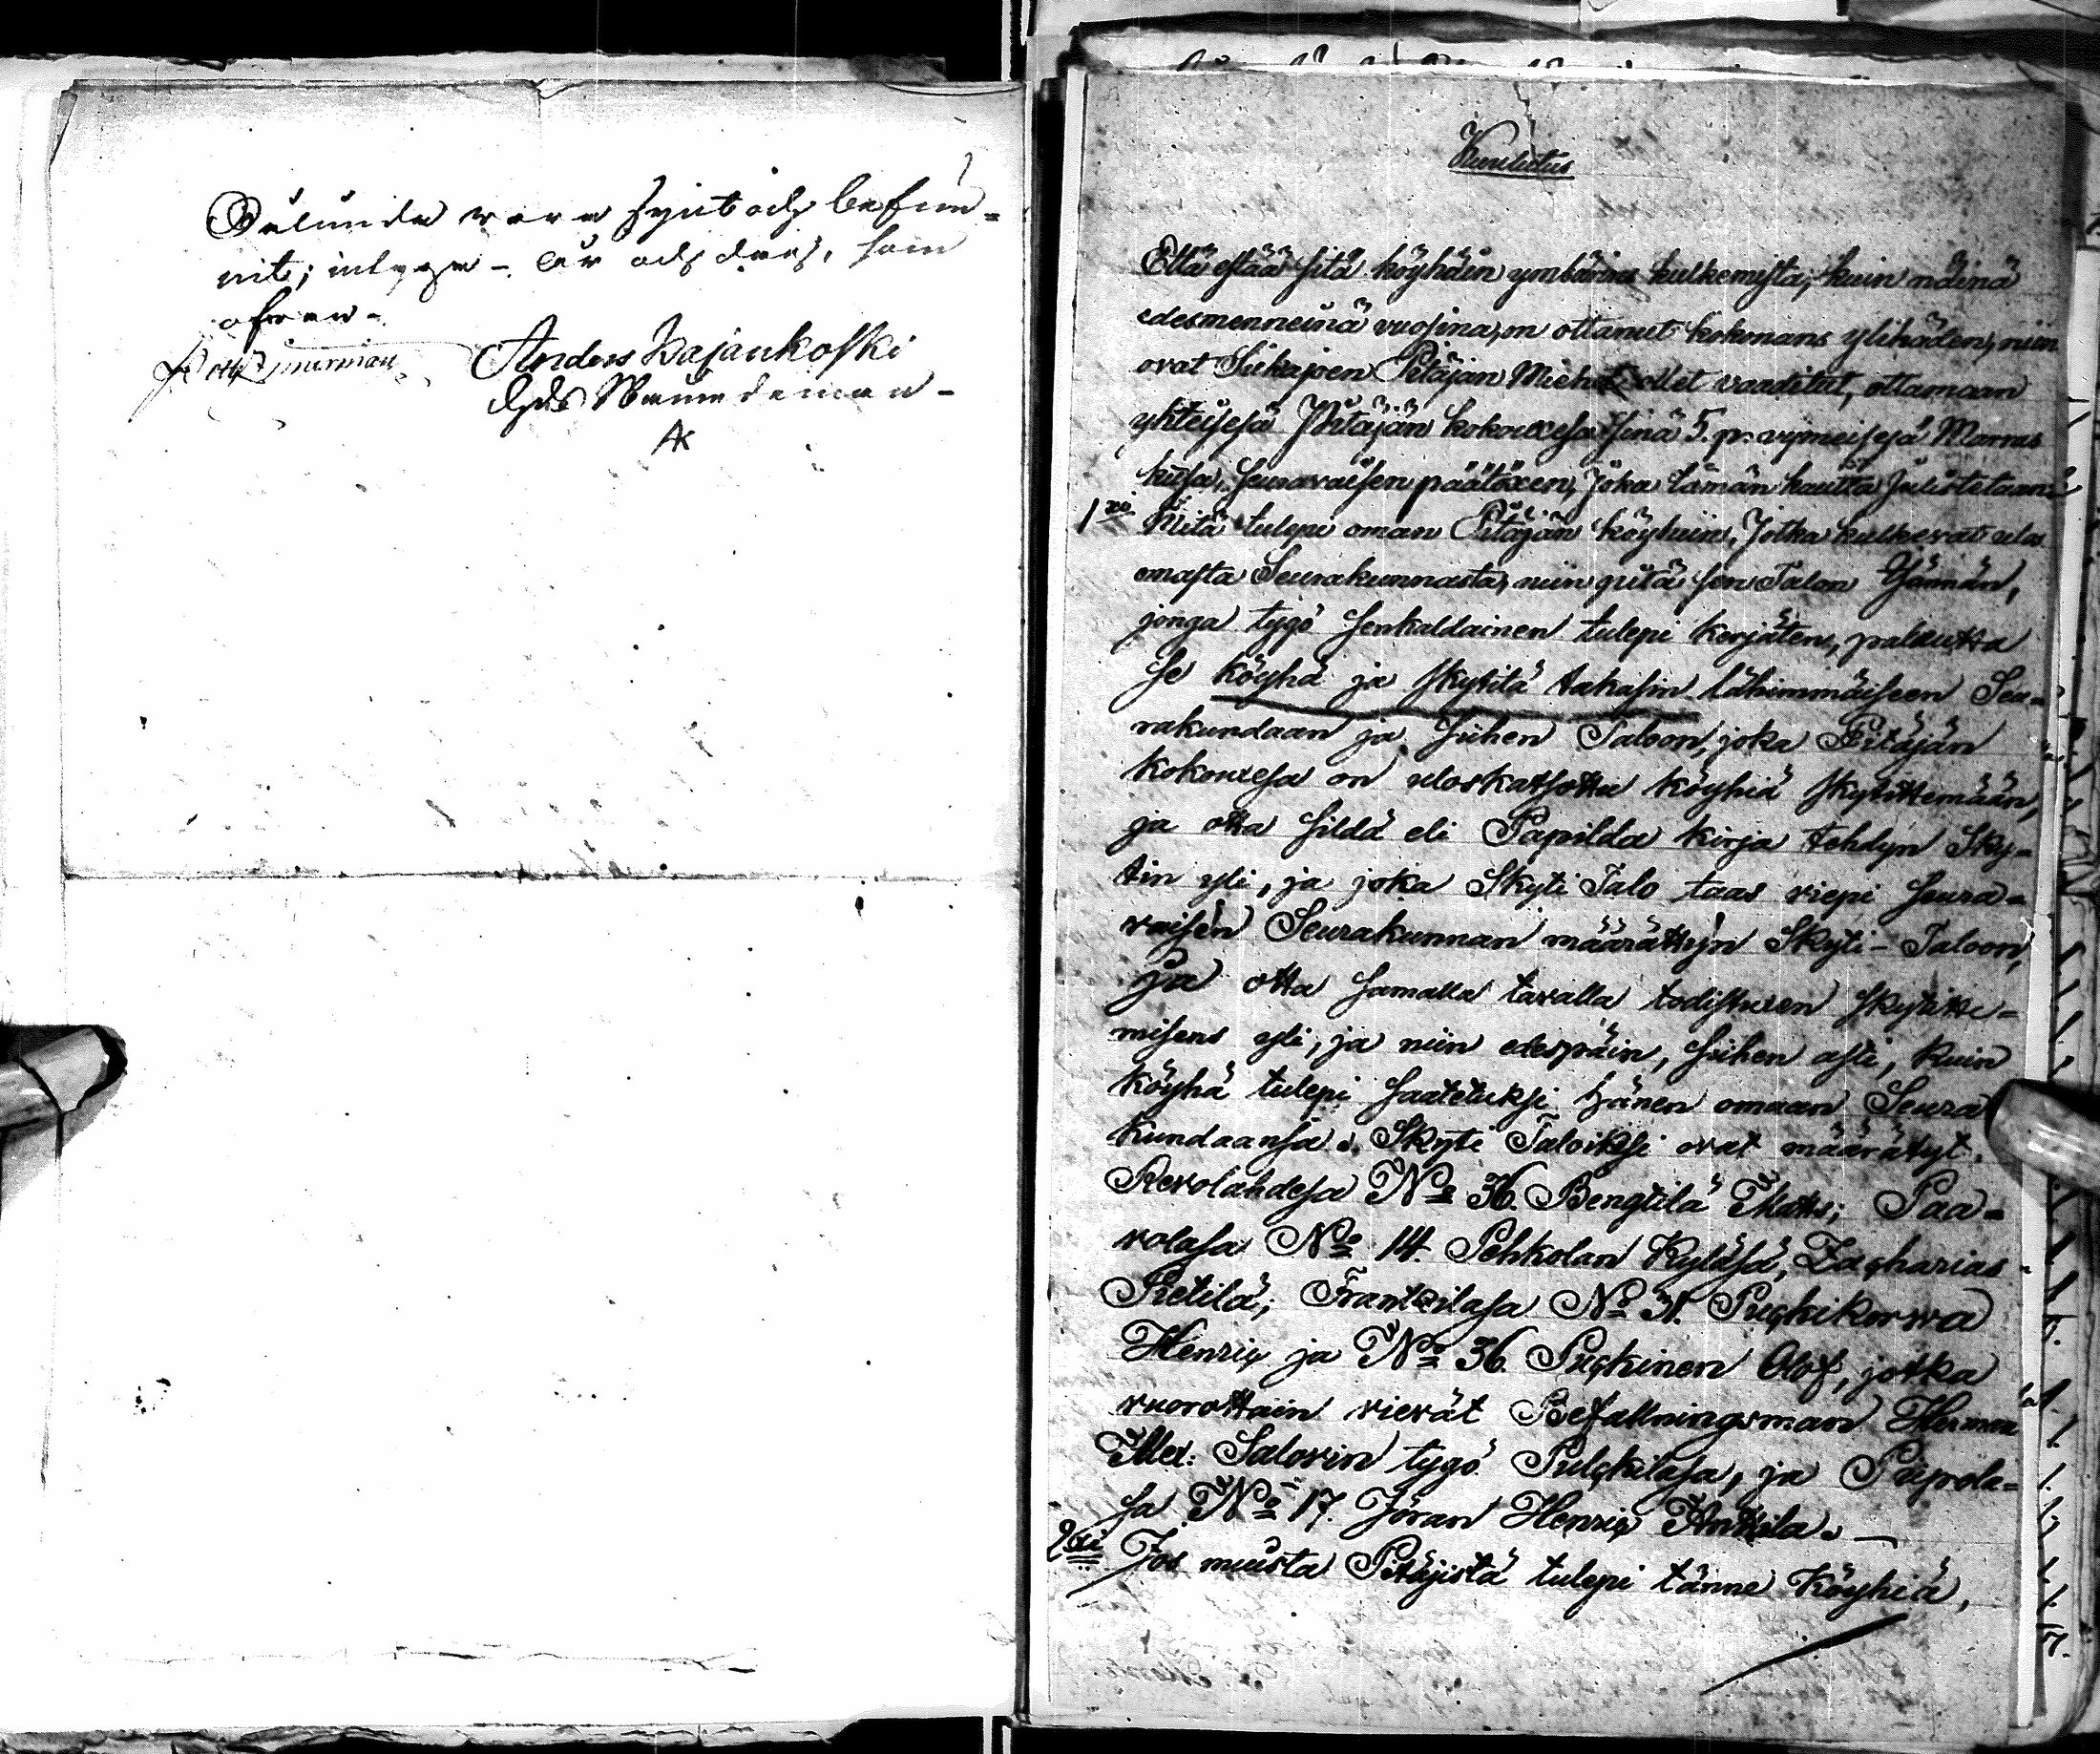 Sålunda vara synt och befun-
nit; intyga - år och dag, som
ofvan -
Anders Kajankoski
Nämndeman -
AK
Kuulutus
Että estää sitä köyhäin ymbärins kulkemista, kuin näinä
edesmenneinä vuosina, on ottanut kokonans ylihäden, niin
ovat Siikajoen Pitäjän Miehet ollet vaaditut, ottamaan
yhteisesä Pitäjän kokouxesa sinä 5. p. viimeisesä Marras
kuusa, seuravaisen päätöxen, Joka tämän kautta Julistetaan:
1xi Mitä tulepi oman Pitäjän köyhiin, Jotka kulkevat ulos
omasta Seurakunnasta, niin pitä sen Talon Isännän,
jonga tygö senkaldainen tulepi kerjäten, palautta
se köyhä ja skytitä takasin lähimmäiseen Seu-
rakundaan ja siihen Taloon, joka Pitäjän
kokouxesa on uloskatsottu köyhiä skytittemään,
ja otta sildä eli Papilda kirja tehdyn Sky-
tin yli, ja joka Skyti Talo taas viepi seura-
vaisen Seurakunnan määrättyn Skyti-Taloon,
Ja otta samalla tavalla todistuxen skytitte-
misens yli, ja niin edespäin, siihen asti, kuin
köyhä tulepi saatetuksi hänen omaan Seura
kundaansa. Skyti Taloiksi ovat määrätyt.
Revolahdesa No 36. Bengtilä Matts; Paa-
volasa No 14. Pehkolan Kyläsä, Zacharias
Pietilä; Frantzilasa No 31. Puckikorwa
Henric ja No 36. Puckinen Olof, jotka
vuorottain vievät Befallningsman Herman
Alex: Salovin tygö Pulckilasa, ja Piipola-
sa No 17. Jöran Henric Anttila. -
2xi Jos muusta Pitäjistä tulepi tänne Köyhiä,